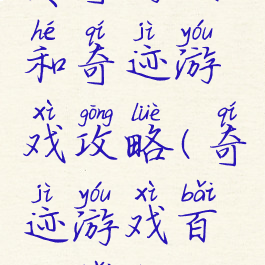 hé qí jì yóu
和奇迹游
xì gōng lüè qí
戏攻略(奇
jì yóu xì bǎi
迹游戏百